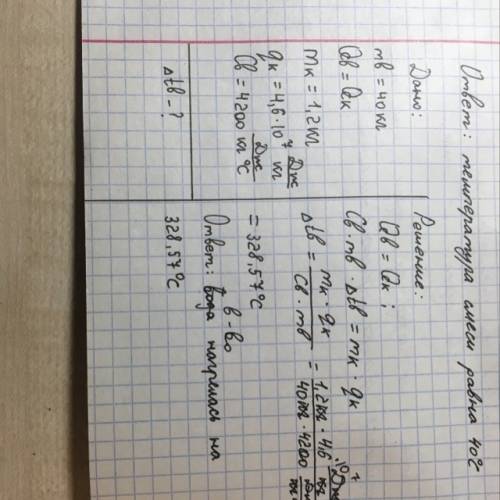 Ответ: температура смеси равна 40°
Дано:
mв = 40 кг
Qв = Qк
mк = 1,2 кг
qк = 4,6·10⁷ Дж/кг
Cв = 4200 Дж/кг°C
Δtв - ?
Решение:
Qв = Qк ;
Cв · mв · Δtв = mк · qк
Δtв = mк · qк / Cв · mв = 1,2 кг · 4,6·10⁷ Дж/кг / 40 кг · 4200 Дж/кг
= 328,57°C
в-во
Ответ: вода нагрелась на
328,57°C